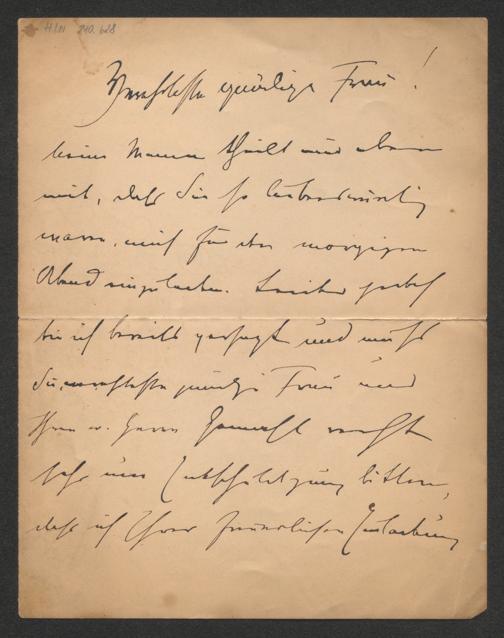 H.I.N. 240.628
Verehrteste gnädige Frau!
meine Mama theilt mir eben
mit, daß Sie so liebenswürdig
waren, mich für den morgigen
Abend einzuladen. Leider jedoch
bin ich bereits versagt und muß
Sie, verehrteste gnädige Frau und
Ihren v. Herrn Gemahl recht
sehr um Entschuldigung bitten,
daß ich Ihrer freundlichen Einladung